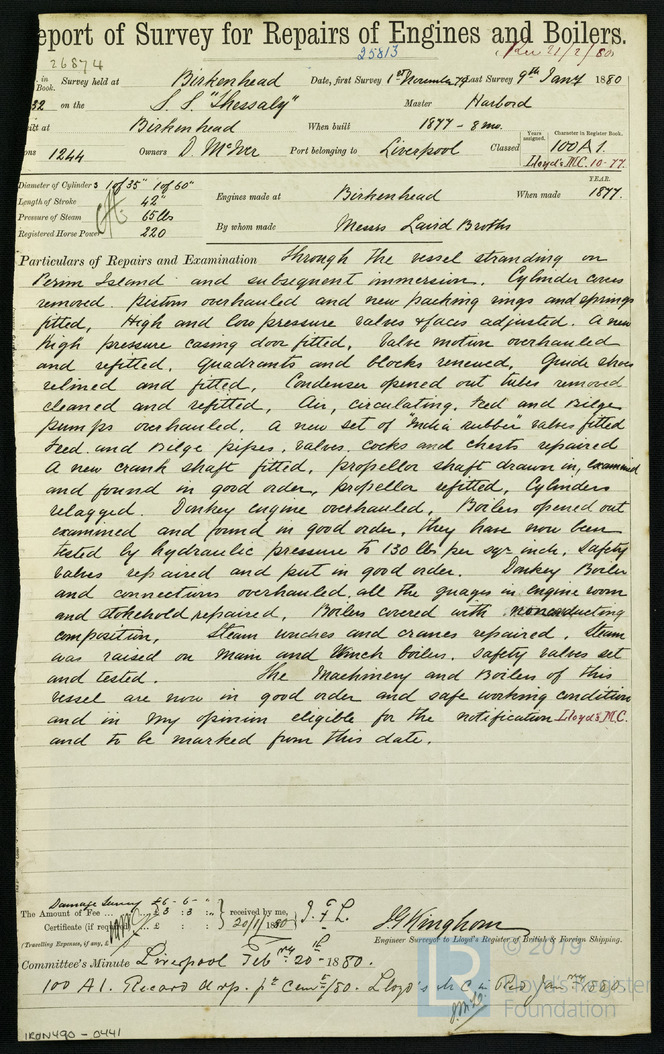 eport of Survey for Repairs of Engines and Boilers.
26874
25813
Rec 21/2/80
in Book. Survey held at Birkenhead Date, first Survey 1st November 79 Last Survey 9th Jany 1880
32 on the S. S. "Thessaly" Master Harbord
uilt at Birkenhead When built 1877 - 8 mo.
ons 1244 Owners D McIver Port belonging to Liverpool Classed
Years assigned. Character in Register Book.
100 A 1.
Lloyd's M.C. 10-77.
Diameter of Cylinders 1 of 35" 1 of 60"
Length of Stroke 42"
Pressure of Steam 65 lbs
Registered Horse Power 220
Engines made at Birkenhead When made YEAR. 1877.
By whom made Messrs Laird Broths
Particulars of Repairs and Examination Through the vessel stranding on
Perim Island and subsequent immersion. Cylinder covers
removed pistons overhauled and new packing rings and springs
fitted, High and low pressure valves & faces adjusted. A new
high pressure casing door fitted, Valve motion overhauled
and refitted, Quadrants and blocks renewed, Guide shoes
relined and fitted, Condenser opened out tubes removed
cleaned and refitted, Air, circulating, Feed and Bilge
pumps overhauled, A new set of "India rubber" valves fitted
Feed and Bilge pipes, valves, cocks and chests repaired
A new crank shaft fitted, propellor shaft drawn in, examined
and found in good order, propellor refitted, Cylinders
relagged. Donkey engine overhauled, Boilers opened out
examined and found in good order, they have now been
tested by hydraulic pressure to 130 lbs per sqr inch, Safety
valves repaired and put in good order. Donkey Boiler
and connections overhauled, all the guages in engine room
and stokehold repaired, Boilers covered with nonconducting
composition, Steam winches and cranes repaired, Steam
was raised on Main and Winch boilers. Safety valves set
and tested. The Machinery and Boilers of this
vessel are now in good order and safe working condition
and in my opinion eligible for the notification Lloyd's M.C.
and to be marked from this date.
Damage Survey £6 - 6 - "
The Amount of Fee ... £3 : 3 : "
Certificate (if required) ... £ : :
received by me,
20/1/1880
(Travelling Expenses, if any, £
J. G. Kinghorn
Engineer Surveyor to Lloyd's Register of British & Foreign Shipping.
Committee's Minute Liverpool Febry 20th 1880.
100 A 1. Record d. rp. pt Cemt/80. Lloyd's M C in Red Janry 1880
© 2019
LR
Lloyd's Register
Foundation
IRON490 - 0441